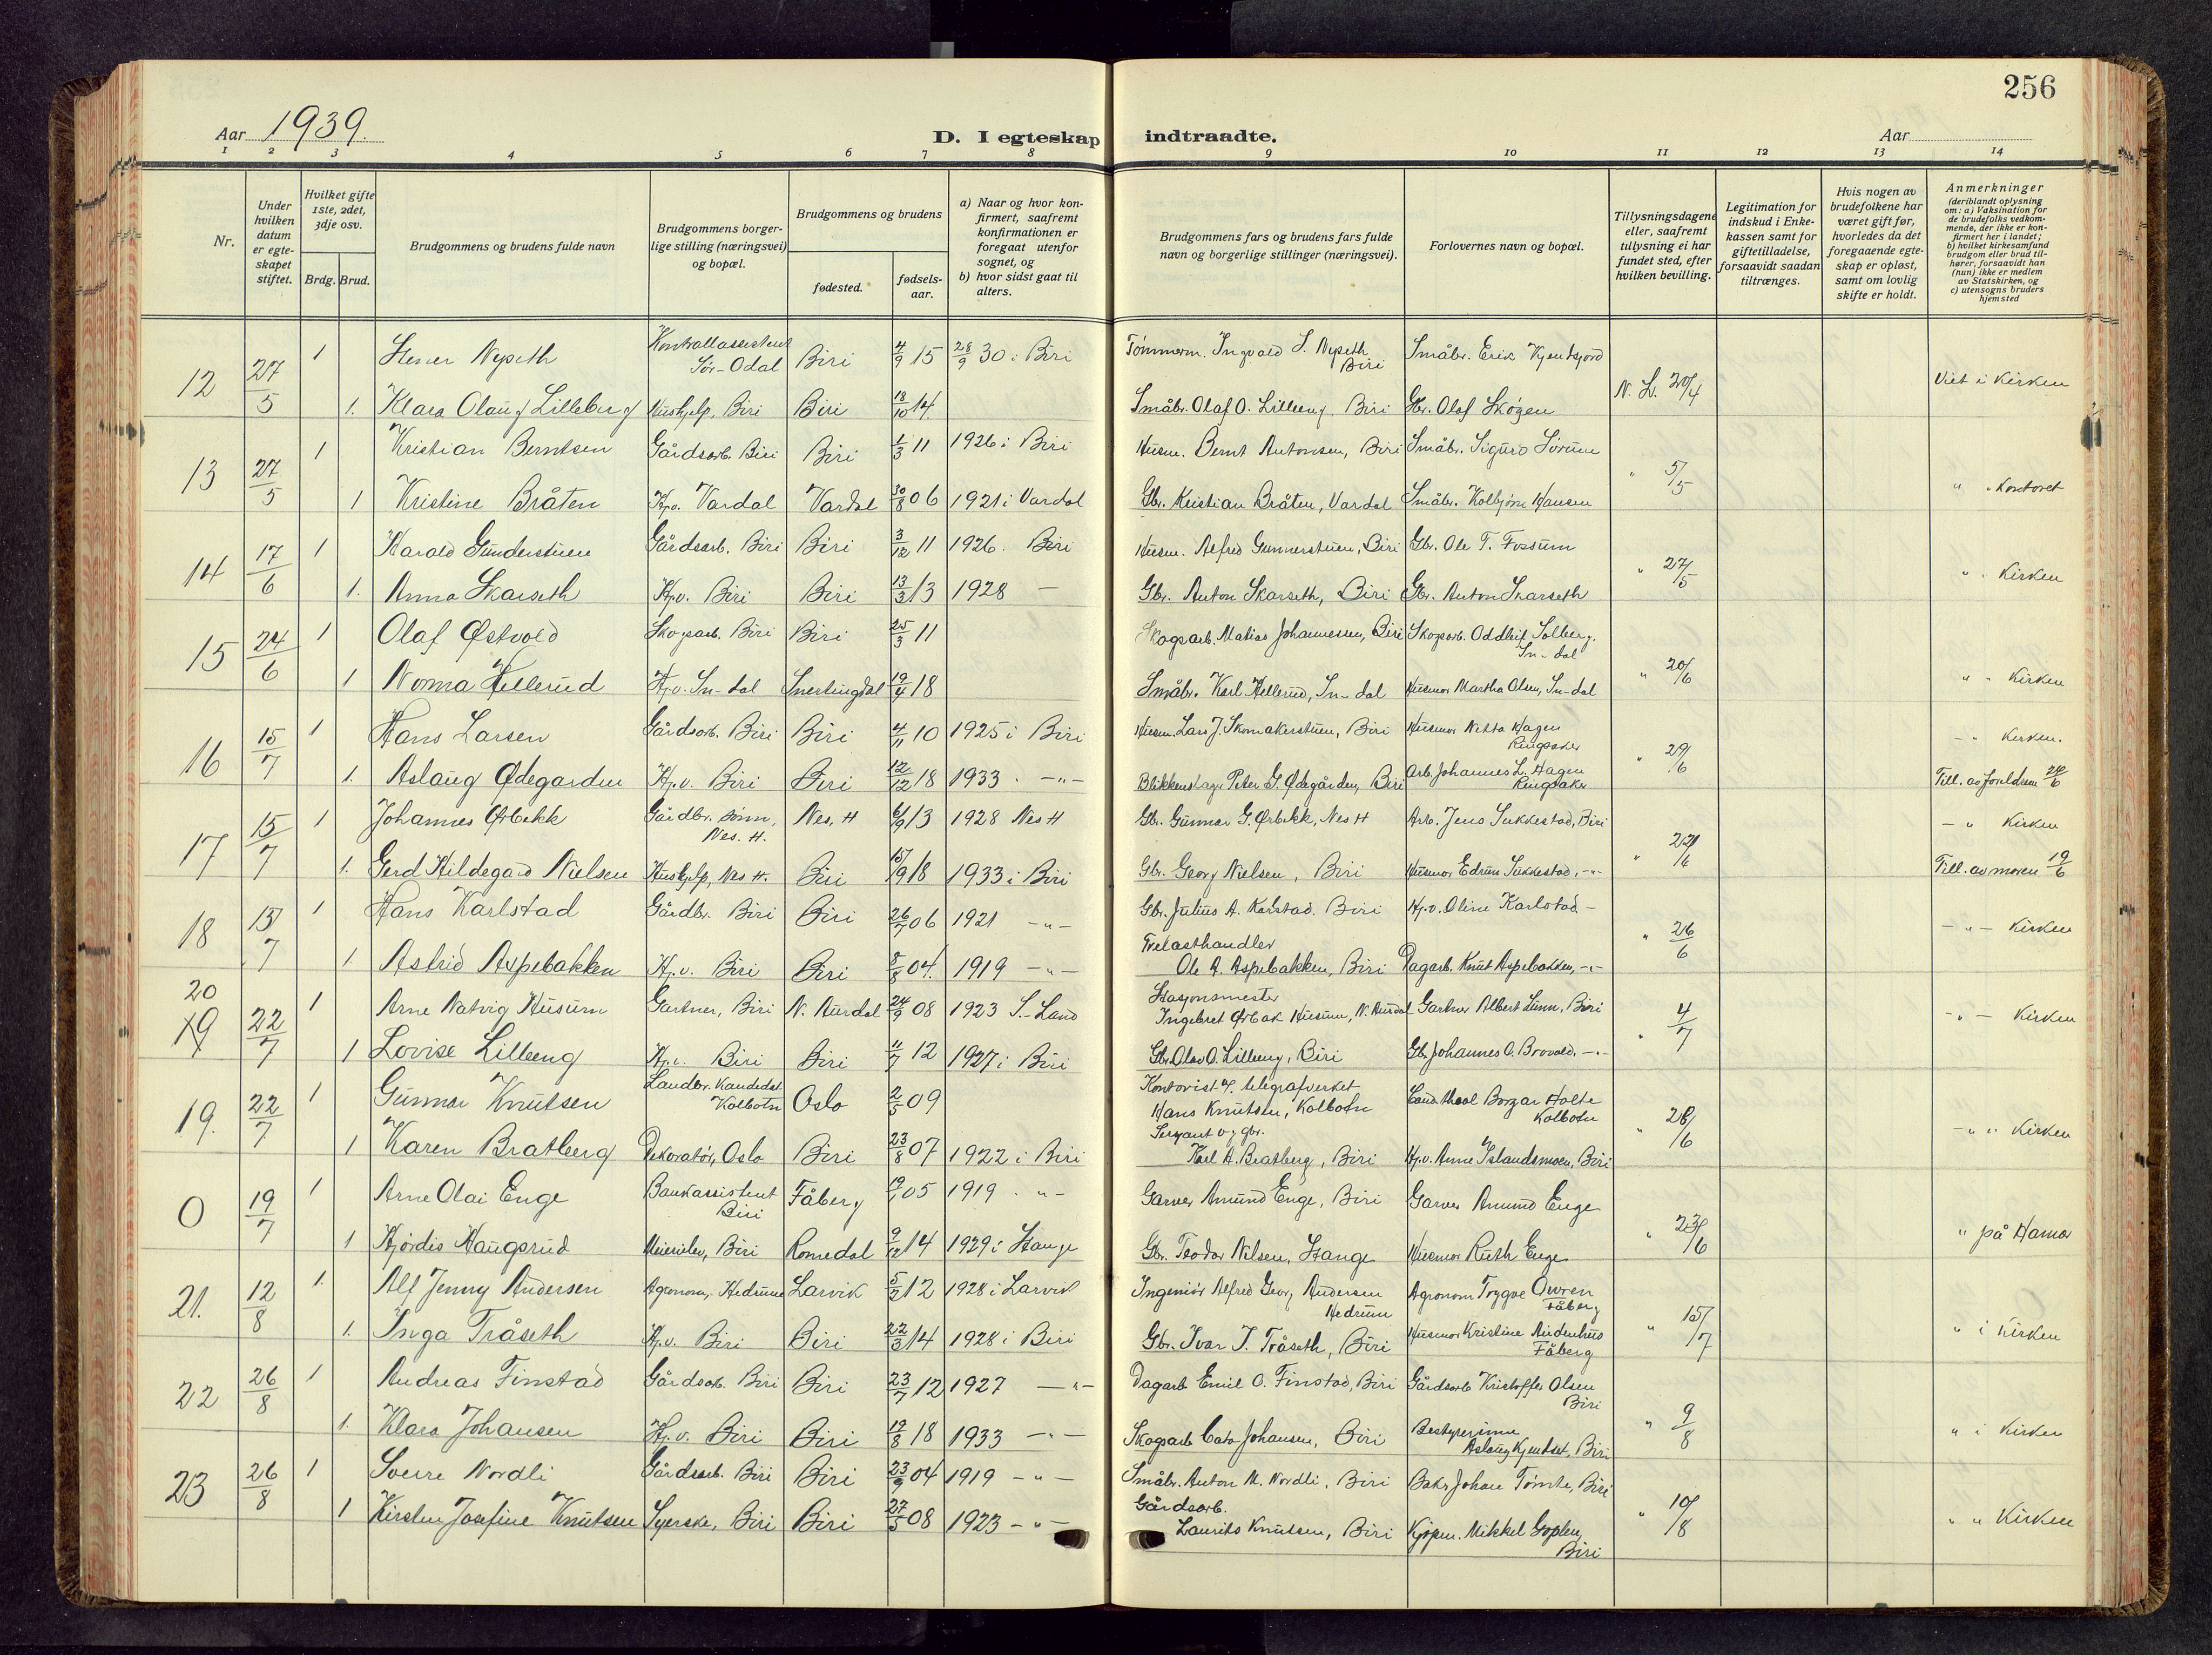 256
Aar 1939.
D. I egteskap indtraadte.
Aar
1 2 3 4 5 6 7 8 9 10 11 12 13 14
Nr.
Under hvilken datum er egteskapet stiftet.
Hvilket gifte 1ste, 2det, 3dje osv.
Brdg. Brud.
Brudgommens og brudens fulde navn
Brudgommens borgerlige stilling (næringsvei) og bopæl.
Brudgommens og brudens
fødested.
fødselsaar.
a) Naar og hvor konfirmert, saafremt konfirmationen er foregaat utenfor sognet, og
b) hvor sidst gaat til alters.
Brudgommens fars og brudens fars fulde navn og borgerlige stillinger (næringsvei).
Forlovernes navn og bopæl.
Tillysningsdagene eller, saafremt tillysning ei har fundet sted, efter hvilken bevilling.
Legitimation for indskud i Enkekassen samt for giftetilladelse, forsaavidt saadan tiltrænges.
Hvis nogen av brudefolkene har været gift før, hvorledes da det foregaaende egteskap er opløst, samt om lovlig skifte er holdt.
Anmerkninger (deriblandt oplysning om: a) Vaksination for de brudefolks vedkommende, der ikke er konfirmert her i landet; b) hvilket kirkesamfund brudgom eller brud tilhører, forsaavidt han (hun) ikke er medlem av Statskirken, og c) utensogns bruders hjemsted
12 27/5 1 Stener Nyseth Kontrollassistent Sør-Odal Biri 4/9 15 28/9 30 i Biri Tømmerm. Ingvald S. Nyseth Biri Småbr. Erik Kjendsjord
1. Klara Olaug Lilleberg Hushjelp, Biri Biri 18/10 14. Småbr. Olaf O. Lilleeng, Biri Gbr. Olaf Skogen N. L. 20/4 Viet i Kirken
13 27/5 1 Kristian Berntsen Gårdsarb. Biri Biri 1/3 11 1926 i Biri Husm. Bernt Antonsen, Biri Småbr. Sigurd Sørum
1 Kristine Bråten Hj.v. Vardal Vardal 30/8 06 1921 i Vardal Gbr. Kristian Bråten, Vardal Småbr. Kolbjørn Hansen " 5/5 " " Kontoret
14 17/6 1 Harald Gunderstuen Gårdsarb. Biri Biri 3/12 11 1926. Biri Husm. Alfred Gunnerstuen, Biri Gbr. Ole T. Fossum
1. Anna Skarseth Hj.v. Biri Biri 13/3 13 1928 — Gbr. Anton Skarseth, Biri Gbr. Anton Skarseth " 27/5 " " Kirken
15 24/6 1 Olaf Østvold Skogsarb. Biri Biri 25/3 11 Skogsarb. Matias Johannessen, Biri Skogsarb. Oddleif Solberg, Sn-dal
1 Norma Hellerud Hj.v. Sn-dal Snertingdal 19/4 18 Småbr. Karl Hellerud, Sn-dal Husmor Martha Olsen, Sn-dal " 20/6 " " Kirken
16 15/7 1 Hans Larsen Gårdsarb. Biri Biri 4/11 10 1925 i Biri Husm. Lars J. Skomakerstuen, Biri Husmor Netta Hagen Ringsaker - " Kirken.
1. Aslaug Ødegarden Hj.v. Biri Biri 12/12 18 1933 . —"— Blikkenslager Peter G. Ødegården, Biri Arb. Johannes L. Hagen Ringsaker " 29/6 Till. av foreldrene 24/6
17 15/7 1 Johannes Ørbekk Gårdbr. sønn, Nes. H. Nes, H 6/9 13 1928 Nes H Gbr. Gunnar G. Ørbekk, Nes H Arb. Jens Sukkestad, Biri - " Kirken
1. Gerd Hildegard Nielsen Hushjelp, Nes H. Biri 15/9 18 1933 i Biri Gbr. Georg Nielsen, Biri Husmor Edrun Sukkestad, -"- " 22/6 Till. av moren 19/6
18 15/7 1 Hans Karlstad Gårdbr. Biri Biri 26/7 06 1921 —"— Gbr. Julius A. Karlstad. Biri Hj.v. Oline Karlstad -
1. Astrid Aspebakken Hj.v. Biri Biri 8/8 04. 1919 —"— Trelasthandler Ole A. Aspebakken, Biri Dagarb. Knut Aspebakken, -"- " 26/6 —"— Kirken
20 19 22/7 1 Arne Natvig Husum Gartner, Biri N. Aurdal 24/9 08 1923 S.-Land Stasjonsmester Ingebret Ørbak Husum, N. Aurdal Gartner Albert Lunn, Biri
1 Lovise Lilleeng Hj.v. Biri Biri 11/7 12 1927 i Biri Gbr. Olav O. Lilleeng, Biri Gb. Johannes O. Brovold. -"- " 4/7 -"- Kirken
19. 22/7 1 Gunnar Knutsen Landbr. Kandidat Kolbotn Oslo 2/5 09 Kontorist v. telegrafverket Hans Knutsen, Kolbotn Borgar Holte Kolbotn
1 Karen Bratberg Dekoratør, Oslo Biri 23/8 07 1922 i Biri Sersjant og gbr. Karl A. Bratberg, Biri Hj.v. Anne Islandsmoen, Biri " 28/6 -" " Kirken
0 19/7 1 Arne Olai Enge Bankassistent Biri Fåberg 19/1 05 1919 . "- Garver Amund Enge, Biri Garver Amund Enge
1 Hjørdis Haugsrud Meierielev, Biri Romedal 9/12 14 1929 i Stange Gbr. Teodor Nilsen, Stange Husmor Ruth Enge " 23/6 " på Hamar
21. 12/8 1. Alf Jenny Andersen Agronom, Hedrum Larvik 5/2 12 1928 i Larvik Ingeniør Alfred Georg Andersen Hedrum Agronom Trygve Owren Fåberg
1. Inga Tråseth Hj.v. Biri Biri 22/3 14 1928 i Biri Gbr. Ivar J. Tråseth, Biri Husmor Kristine Audenhus Fåberg " 15/7 " i Kirken
22 26/8 1 Andreas Finstad Gårdsarb. Biri Biri 23/7 12 1927 —"- Dagarb Emil O. Finstad, Biri Gårdsarb Kristoffer Olsen Biri
1. Klara Johansen Hj.v. Biri Biri 19/8 18 1933 —"— Skogsarb Cato Johansen, Biri Bestyrerinne Aslaug Kjendset, Biri " 9/8 " i Kirken
23 26/8 1 Sverre Nordli Gårdsarb. Biri Biri 23/9 04 1919 -"- Småbr. Anton M. Nordli, Biri Baker Johan Tømte, Biri
1 Kirsten Josefine Knutsen Syerske, Biri Biri 27/5 08 1923 -"- Gårdsarb. Laurits Knutsen, Biri Kjøpm. Mikkel Goplen, Biri " 10/8 " " Kirken